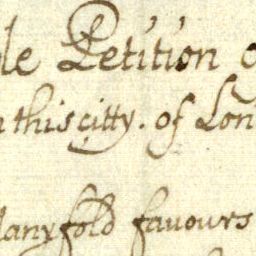 le Petition o
n this citty. of Lon
Manyfold favours